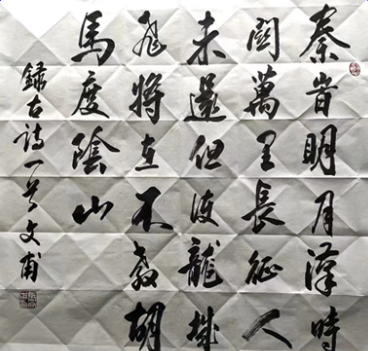 秦旹明月漢時
關萬里長征人
未還但使龍城
飛將在不教胡
馬度陰山
録古詩一首文甫